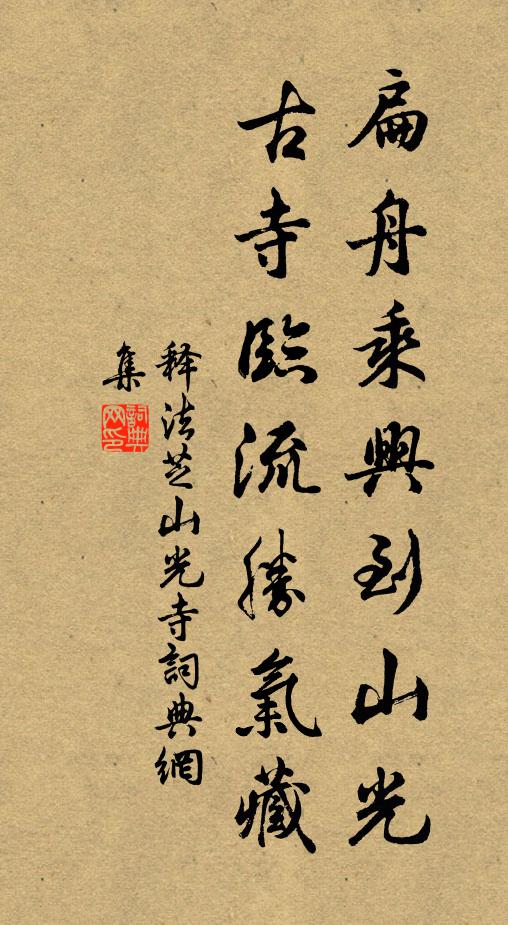 扁舟乘興到山光
古寺臨流勝氣藏
释法芝山光寺詞典網
集
詞典網印